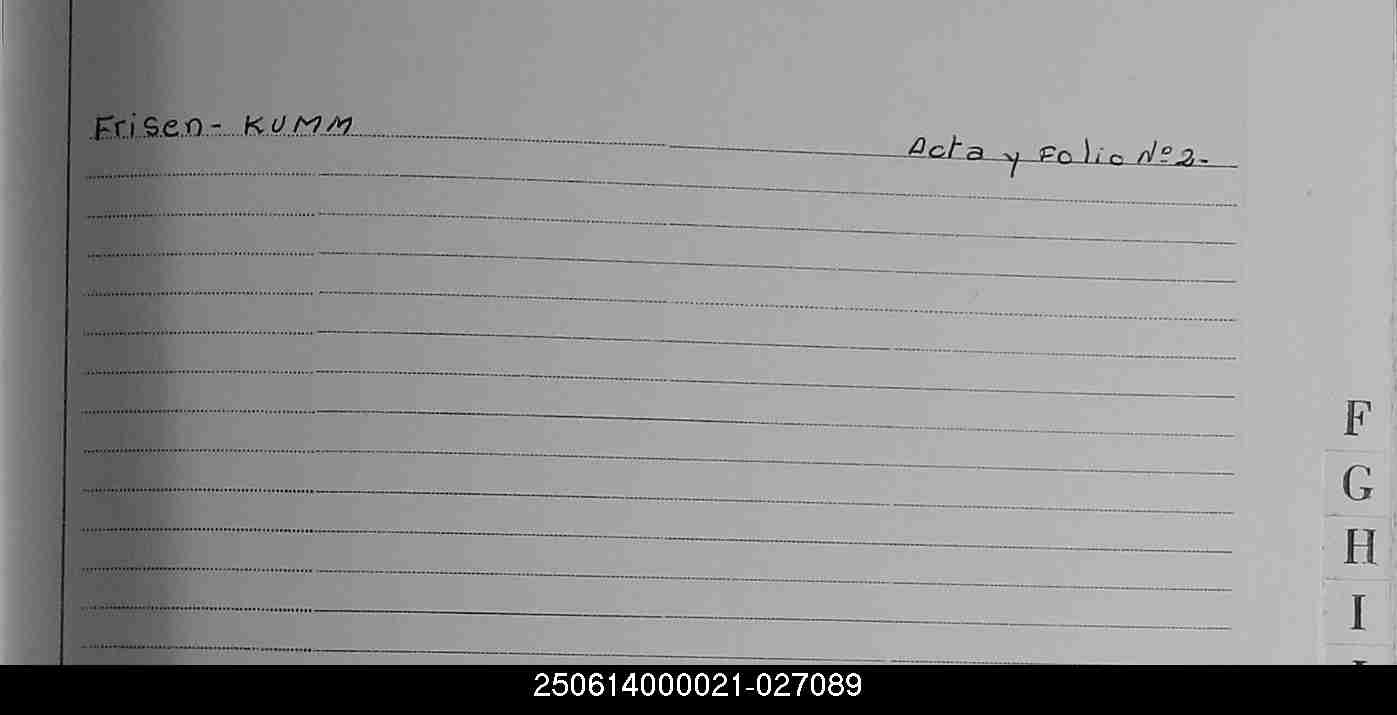 Frisen - KUMM
Acta y Folio Nº 2-
F
G
H
I
250614000021-027089